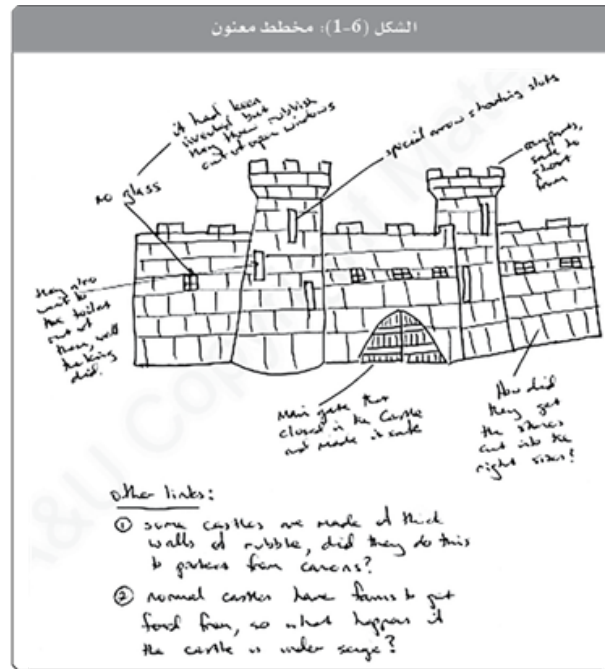 الشكل (6-1): مخطط معنون
it had been
invented but
they threw rubbish
out of open windows
no glass
special arrow shooting slots
safe to
shoot
from
they also
went to
the toilet
out of
them, well
the king
did.
Main gate that
closed in the Castle
and made it safe
How did
they get
the stones
cut into the
right sizes?
other links:
① some castles are made of thick
walls of rubble, did they do this
to protect from canons?
② normal castles have farms to get
food from, so what happens if
the castle is under seige?